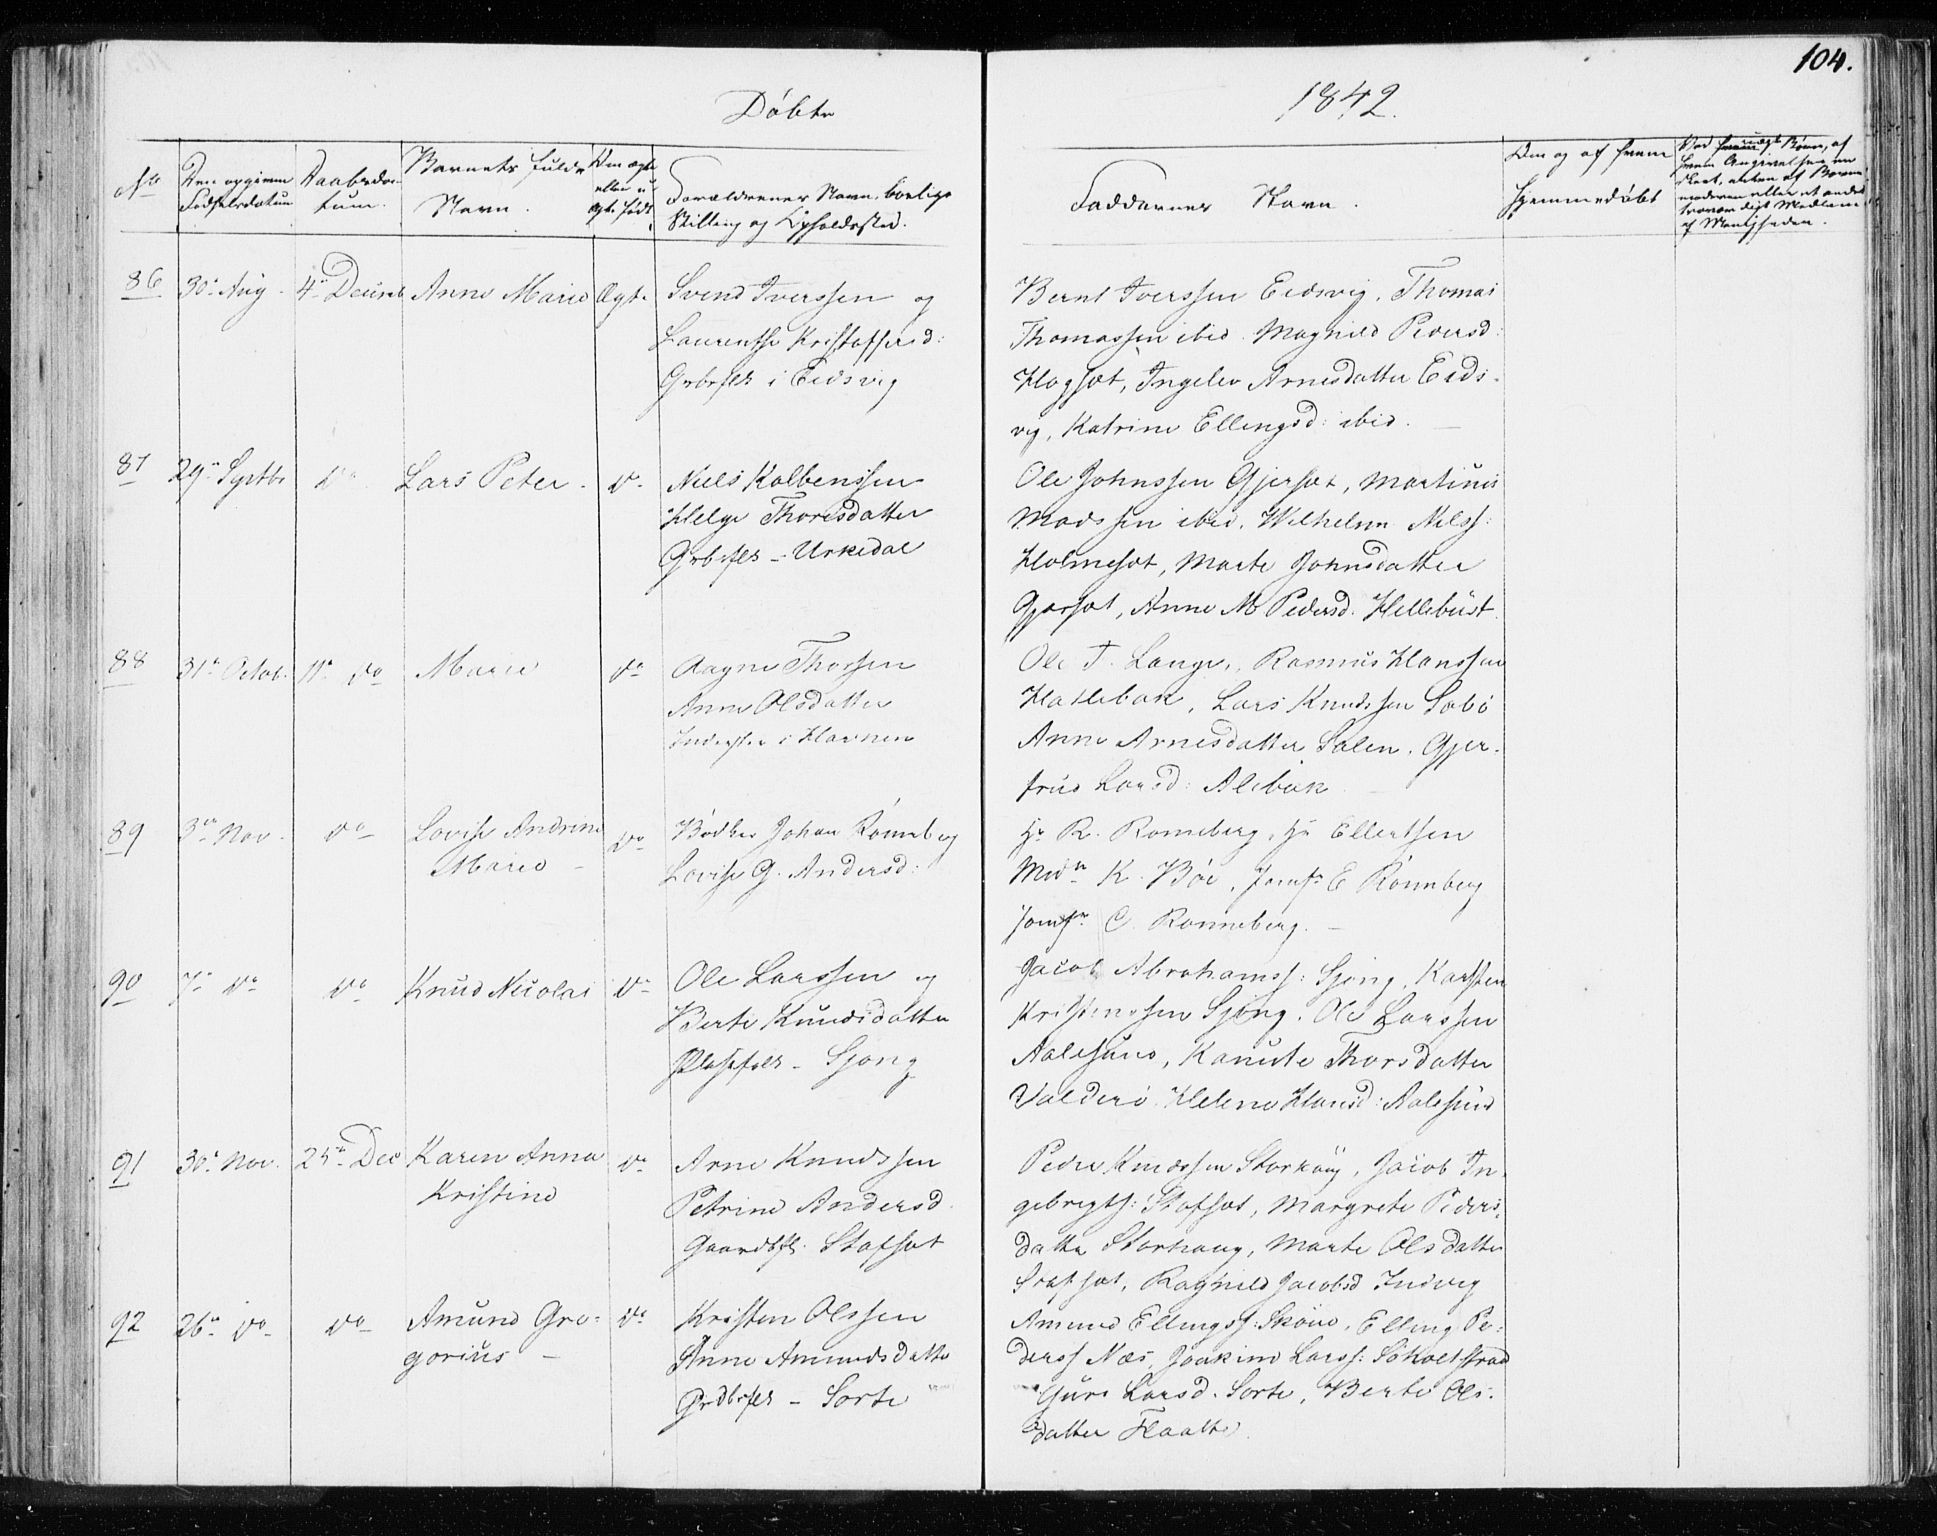 104.
Døbte
1842.
No
Den opgivne Fødselsdatum
Daabsdatum.
Barnets fulde Navn.
Om ægte eller uægte født
Forældrenes Navn, borlige Stilling og Opholdssted.
Faddernes Navn.
Om og af hvem hjemmedøbt
Ved uægte Børn, af hvem Angivelsen er skeet, enten af Barnemoderen eller et andet troværdigt Medlem af Menigheden.
86 30te Aug. 4de Decemb Anne Marie Ægte Svend Iverssen og
Laurentse Kristoffersd:
Grbrflk i Eidsvig
Bernt Iverssen Eidsvig, Thomas
Thomassen ibid. Magnild Pedersd:
Hogset, Ingelev Arnesdatter Eids-
vig, Katrine Ellingsd: ibid.
87 29de Septbr do Lars Peter do Niels Kolbenssen
Helge Thoresdatter
Grbrflk - Urkedal
Ole Johnssen Gjerset, Martinus
Madssen ibid. Wilhelm Nilss:
Holmeset, Marte Johnsdatter
Gjerset, Anne M Pedersd. Hellebust
88 31te Octob. 11te do Marie do Aagne Thorsen
Anne Olsdatter
Inderster i Havnen
Ole T. Lange, Rasmus Hanssen
Hatlebak, Lars Knudssen Sobö
Anne Arnesdatter Salen. Gjer-
trud Larsd: Alebak
89 3die Nov. do Lovise Andrine
Marie do Bødker Johan Rønneberg
Lovise G. Andersd:
Hr R. Ronneberg, Hr Ellertsen
Mdm K. Böe, Jomfr E Rönneberg
Jomfr C. Ronneberg.
90 7de do do Knud Nicolai do Ole Larssen og
Berte Knudsdatter
Pladsfolk - Sjong
Jacob Abrahamss: Sjöng, Karsten
Kristenssen Sjong. Ole Larssen
Aalesund, Kanute Thorsdatter
Valderö Helene Hansd: Aalesund
91 30te Nov. 25de Dec Karen Anna
Kristine do Arne Knudssen
Petrine Andersd.
Gaardbfl. Stafset
Peder Knudssen Storhaug, Jacob In-
gebregts: Stafset, Margrete Peders-
datter Storhaug, Marte Olsdatter
Stafset, Ragnild Jacobsd Indvig
92 26de do do Amund Gre-
gorius do Kristen Olssen
Anne Amundsdatter
Grdbrflk - Sorte
Amund Ellings: Skoue, Elling Pe-
derss Næs, Joakim Larss: Söholtstrand
Guri Larsd. Sorte, Berte Ols-
datter Flaatte.